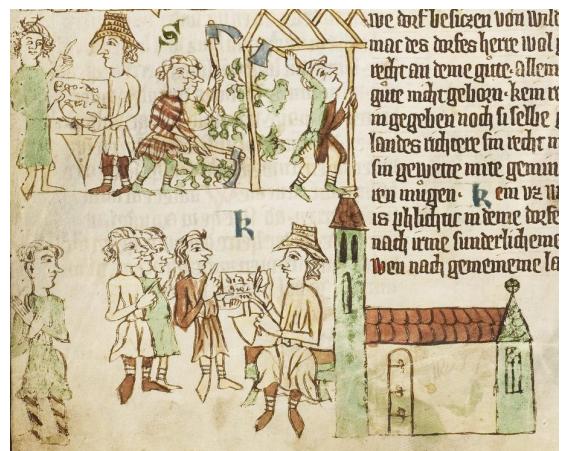 S
K
we dorf besiczen von
mac des dorfes herre wol
recht an deme gute. allem
gute nicht geborn. kein
in gegeben noch si selbe
landes richtere sin recht
sin gewette mite
ren mugen. K ein uz
is phlichtic in deme dorfe
nach irme sunderlicheme
wen nach gemeineme la